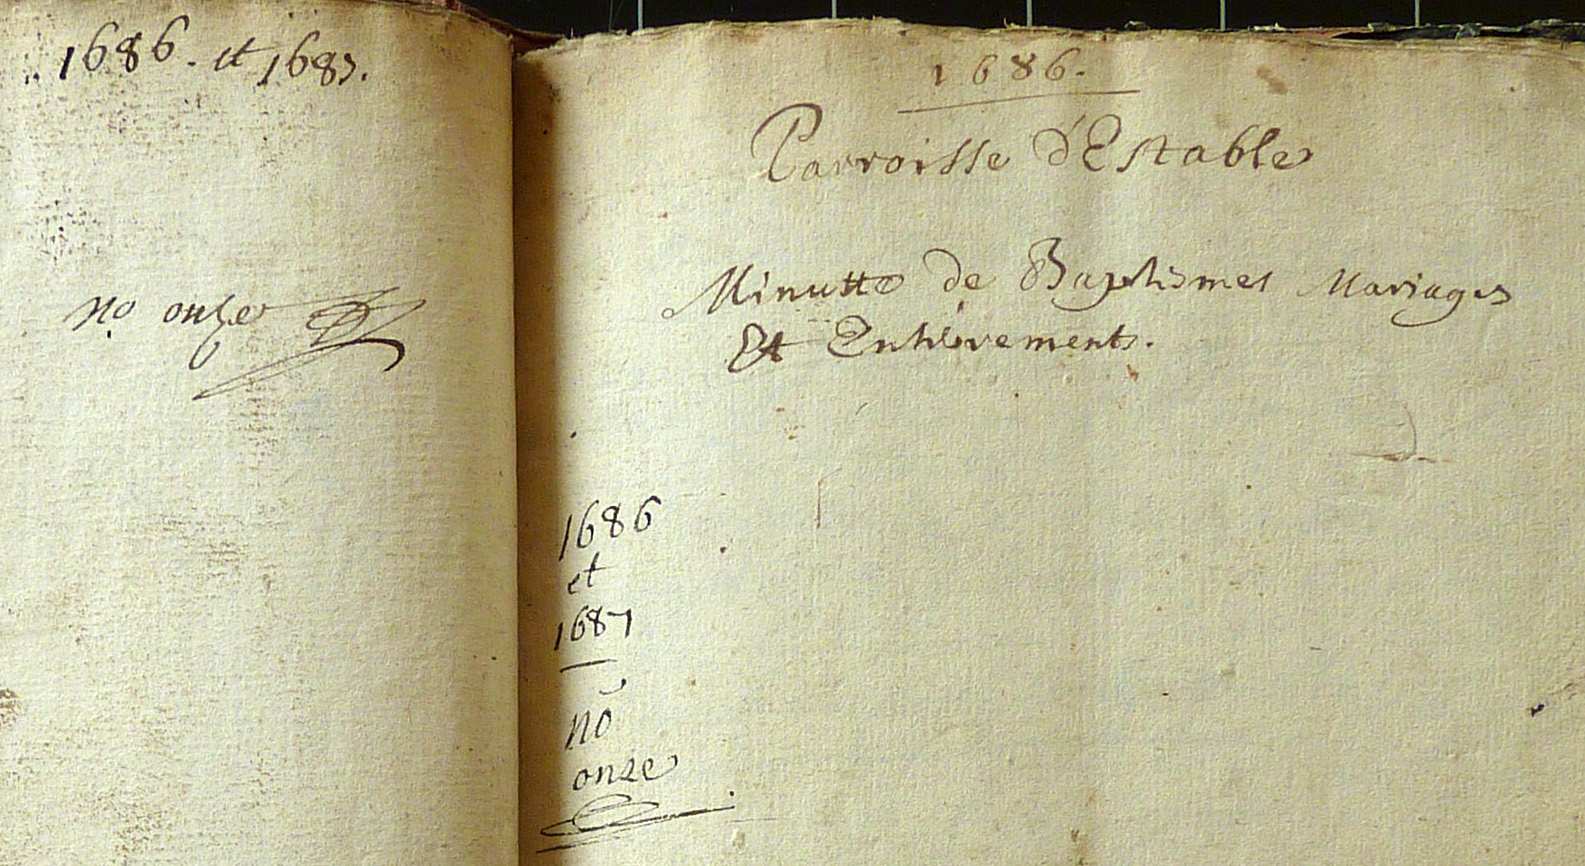 1686. et 1687.
no onze
1686.
Parroisse d'Estable
Minutte de Baptismes Mariages
Et Enterrements.
1686
et
1687
no
onze